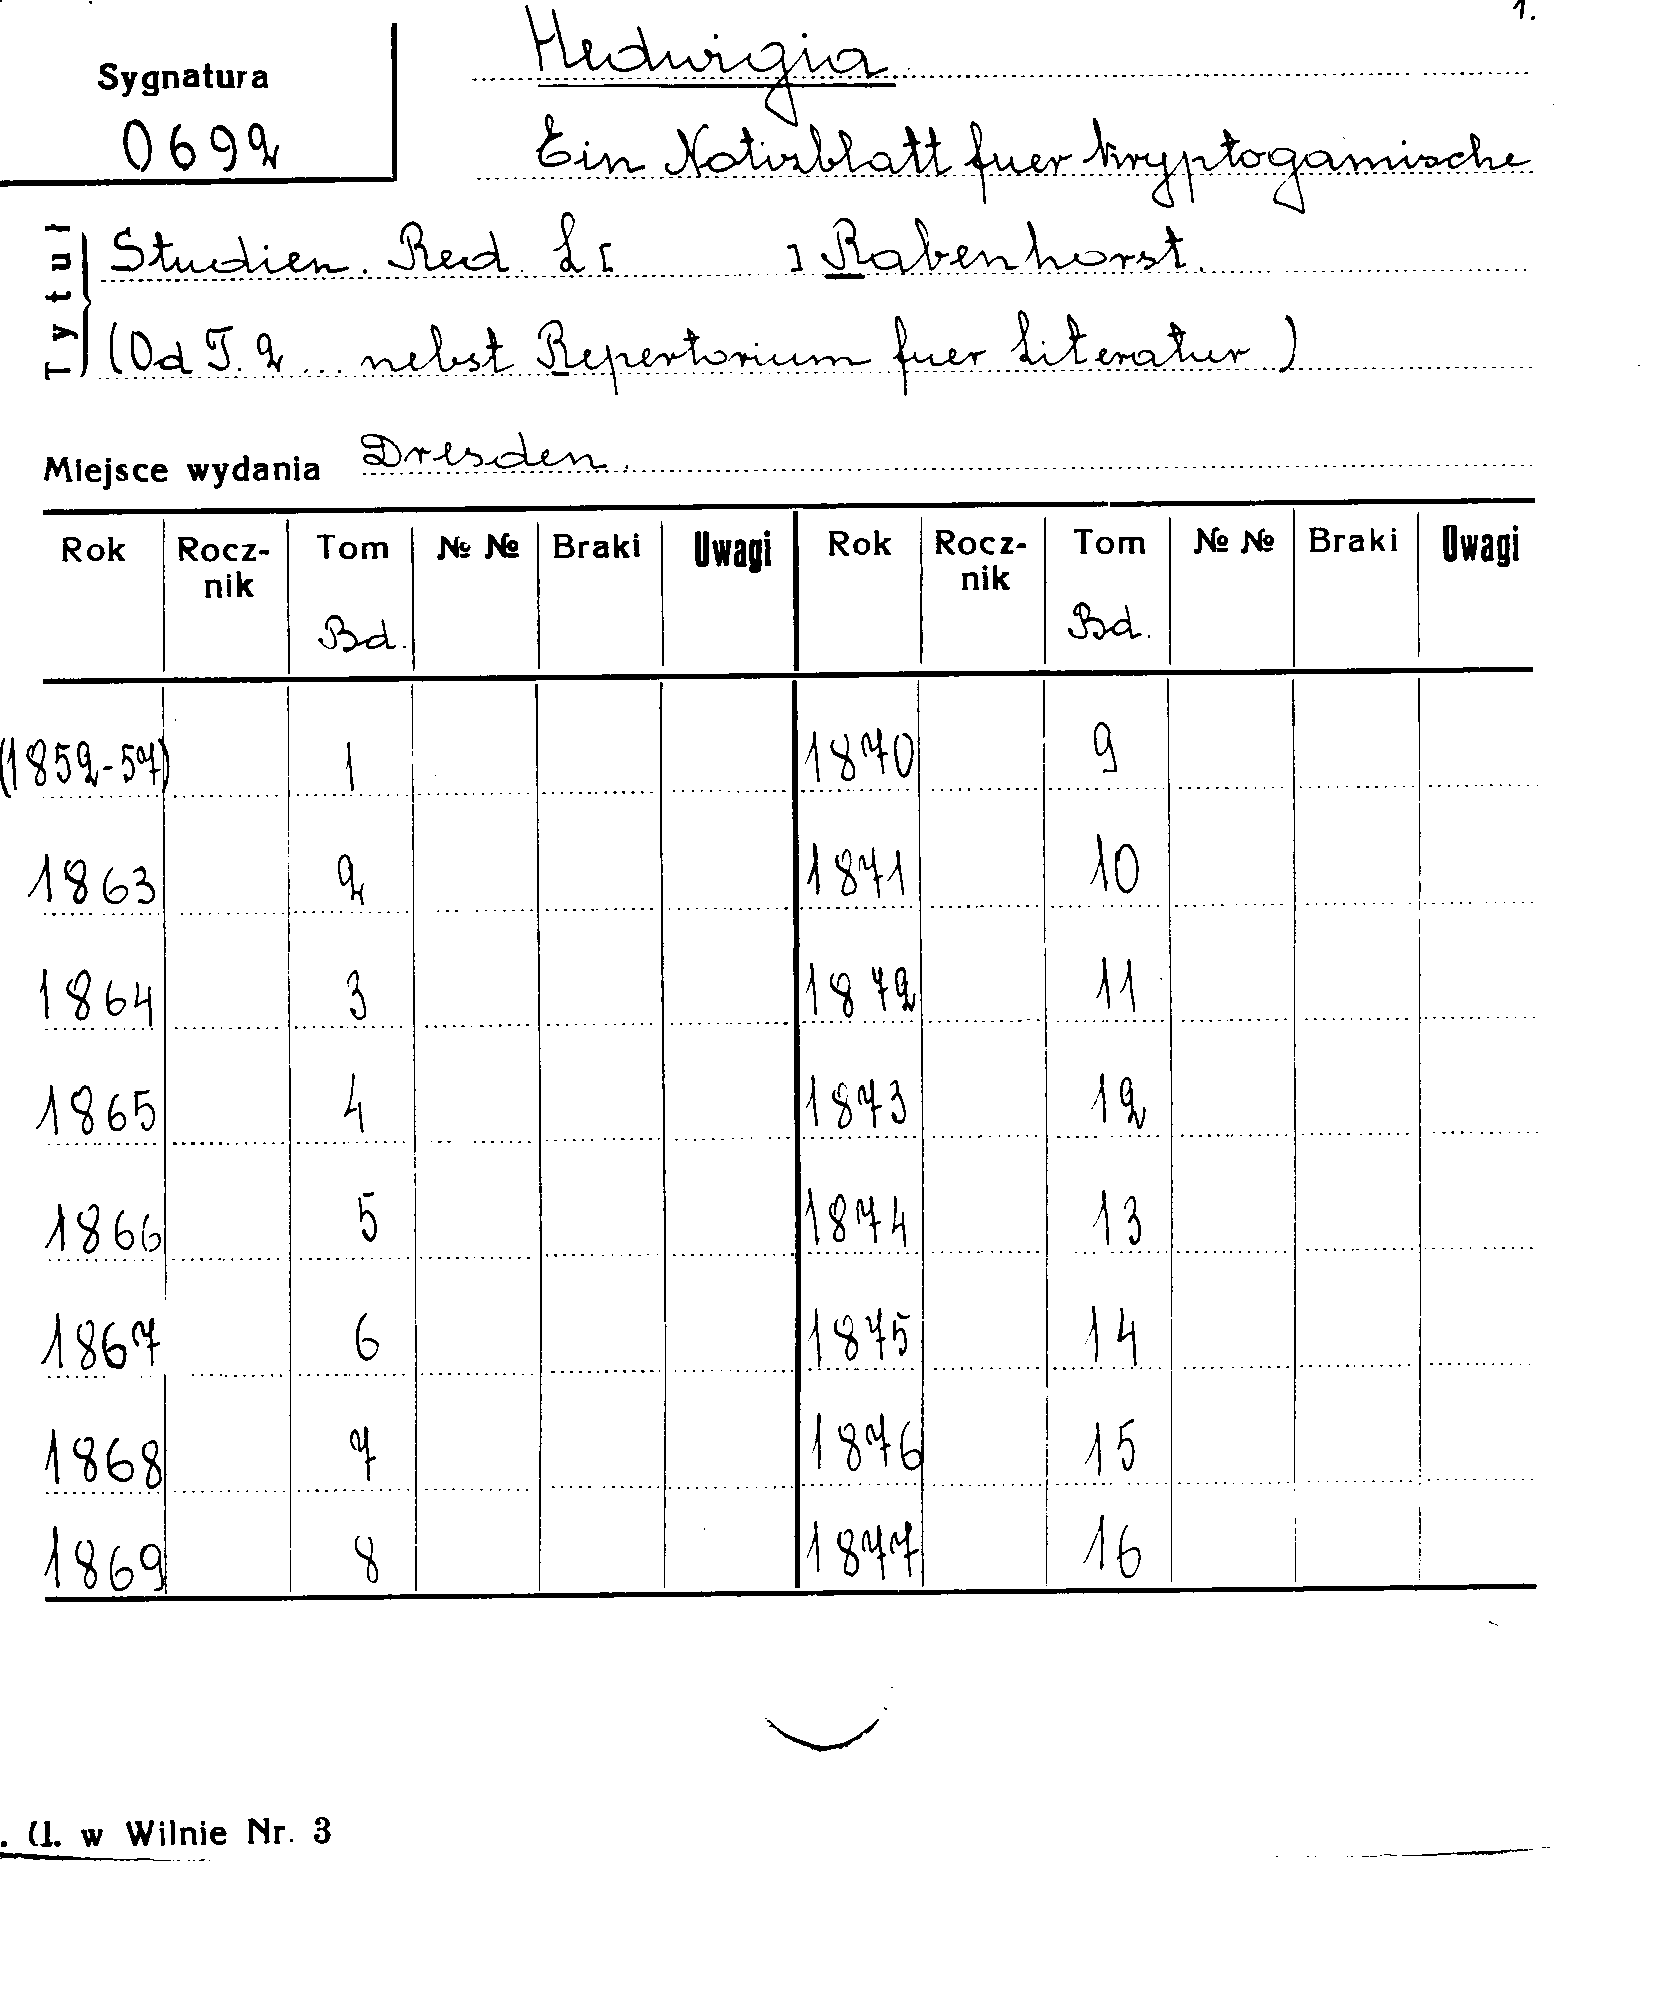 1.
Sygnatura
0692
Hedwigia
Ein Notizblatt fuer kryptogamische
Tytuł
Studien. Red. L[ ] Rabenhorst.
(Od T. 2 ... nebst Repertorium fuer Literatur)
Miejsce wydania Dresden.
Rok Rocz-nik Tom № № Braki Uwagi Rok Rocz-nik Tom № № Braki Uwagi
Bd. Bd.
(1852-57) 1 1870 9
1863 2 1871 10
1864 3 1872 11
1865 4 1873 12
1866 5 1874 13
1867 6 1875 14
1868 7 1876 15
1869 8 1877 16
. U. w Wilnie Nr. 3